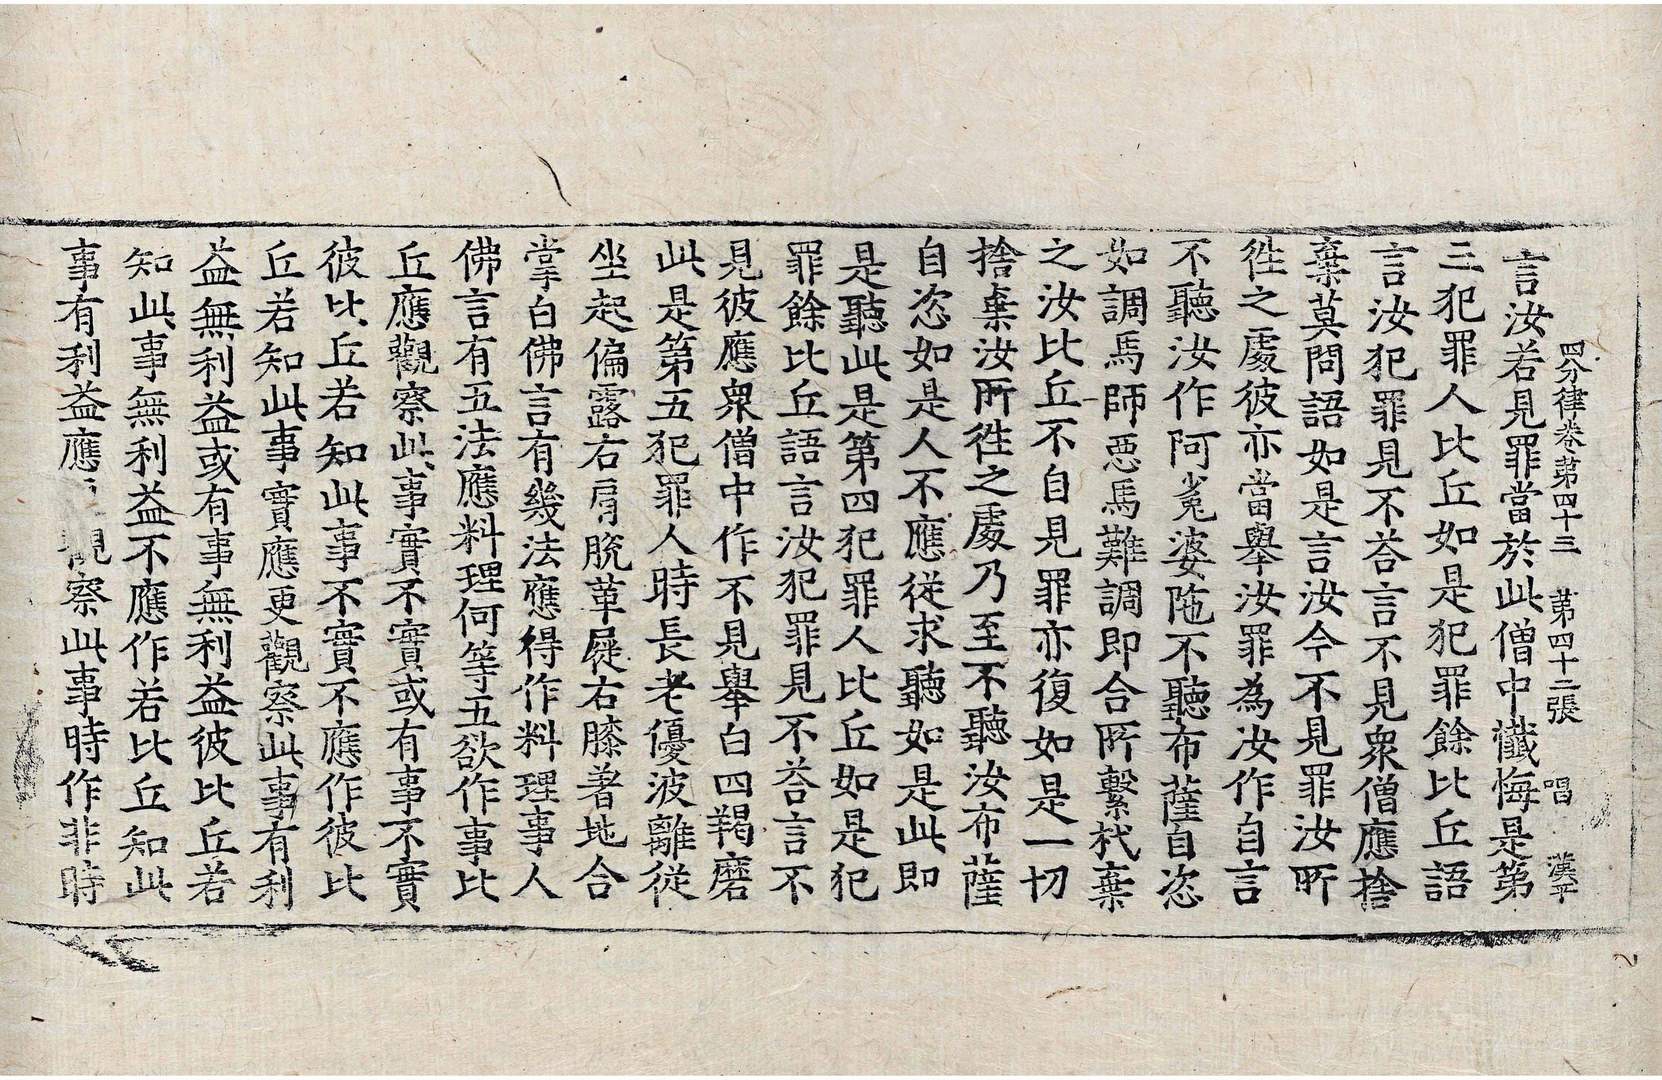 四分律卷第四十三 第四十二張 唱 漢平
言汝若見罪當於此僧中懺悔是第
三犯罪人比丘如是犯罪餘比丘語
言汝犯罪見不荅言不見衆僧應捨
棄莫問語如是言汝今不見罪汝所
徃之處彼亦當舉汝罪為汝作自言
不聽汝作阿㝹婆陁不聽布薩自恣
如調馬師惡馬難調即合所繫杙棄
之汝比丘不自見罪亦復如是一切
捨棄汝所徃之處乃至不聽汝布薩
自恣如是人不應從求聽如是此即
是聽此是第四犯罪人比丘如是犯
罪餘比丘語言汝犯罪見不荅言不
見彼應衆僧中作不見舉白四羯磨
此是第五犯罪人時長老優波離從
坐起偏露右肩脫革屣右膝著地合
掌白佛言有幾法應得作料理事人
佛言有五法應料理何等五欲作事比
丘應觀察此事實不實或有事不實
彼比丘若知此事不實不應作彼比
丘若知此事實應更觀察此事有利
益無利益或有事無利益彼比丘若
知此事無利益不應作若比丘知此
事有利益應觀察此事時作非時